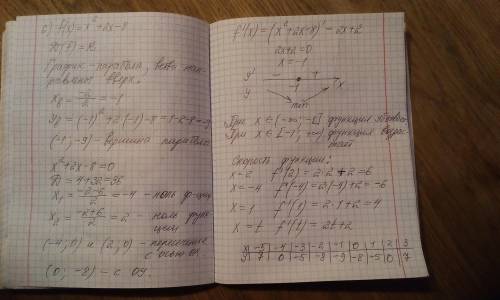 c) f(x) = x² + 2x - 8
D(f) = R.
График - парабола, ветви нап-
равлены вверх.
x₀ = -2/2 = -1
y₀ = (-1)² + 2·(-1) - 8 = 1 - 2 - 8 = -9
(-1; -9) - вершина параболы
x² + 2x - 8 = 0
D = 4 + 32 = 36
x₁ = (-2-6)/2 = -4 - ноль ф-ции
x₂ = (-2+6)/2 = 2 - ноль функ-
ции
(-4; 0) и (2; 0) - пересечение
с осью ОХ
(0; -8) - с ОУ.
f'(x) = (x² + 2x - 8)' = 2x + 2
2x + 2 = 0
x = -1
y' - +
y -1 x
min
При x ∈ (-∞; -1] функция убывает
При x ∈ [-1; +∞) функция возрас-
тает
Скорость функции:
x = 2 f'(2) = 2·2 + 2 = 6
x = -4 f'(-4) = 2·(-4) + 2 = -6
x = 1 f'(1) = 2·1 + 2 = 4
x = t f'(t) = 2t + 2
x | -5 | -4 | -3 | -2 | -1 | 0 | 1 | 2 | 3
y | 7 | 0 | -5 | -8 | -9 | -8 | -5 | 0 | 7